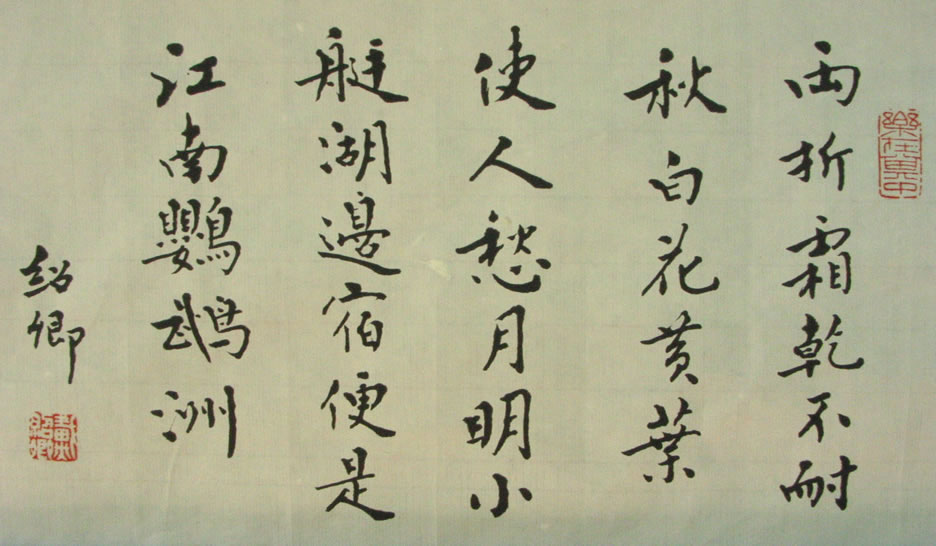 雨折霜乾不耐
秋白花黄葉
使人愁月明小
艇湖邊宿便是
江南鸚鵡洲
紹卿